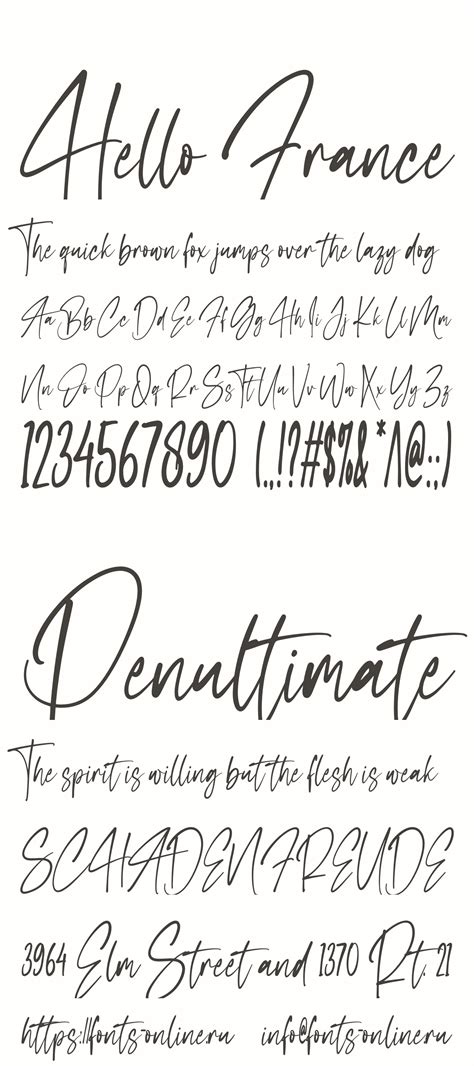 Hello France
The quick brown fox jumps over the lazy dog
Aa Bb Cc Dd Ee Ff Gg Hh Ii Jj Kk Ll Mm
Nn Oo Pp Qq Rr Ss Tt Uu Vv Ww Xx Yy Zz
1234567890 (.,!?#$%&*^@:;)
Penultimate
The spirit is willing but the flesh is weak
SCHADENFREUDE
3964 Elm Street and 1370 Rt. 21
https://fonts-online.ru info@fonts-online.ru